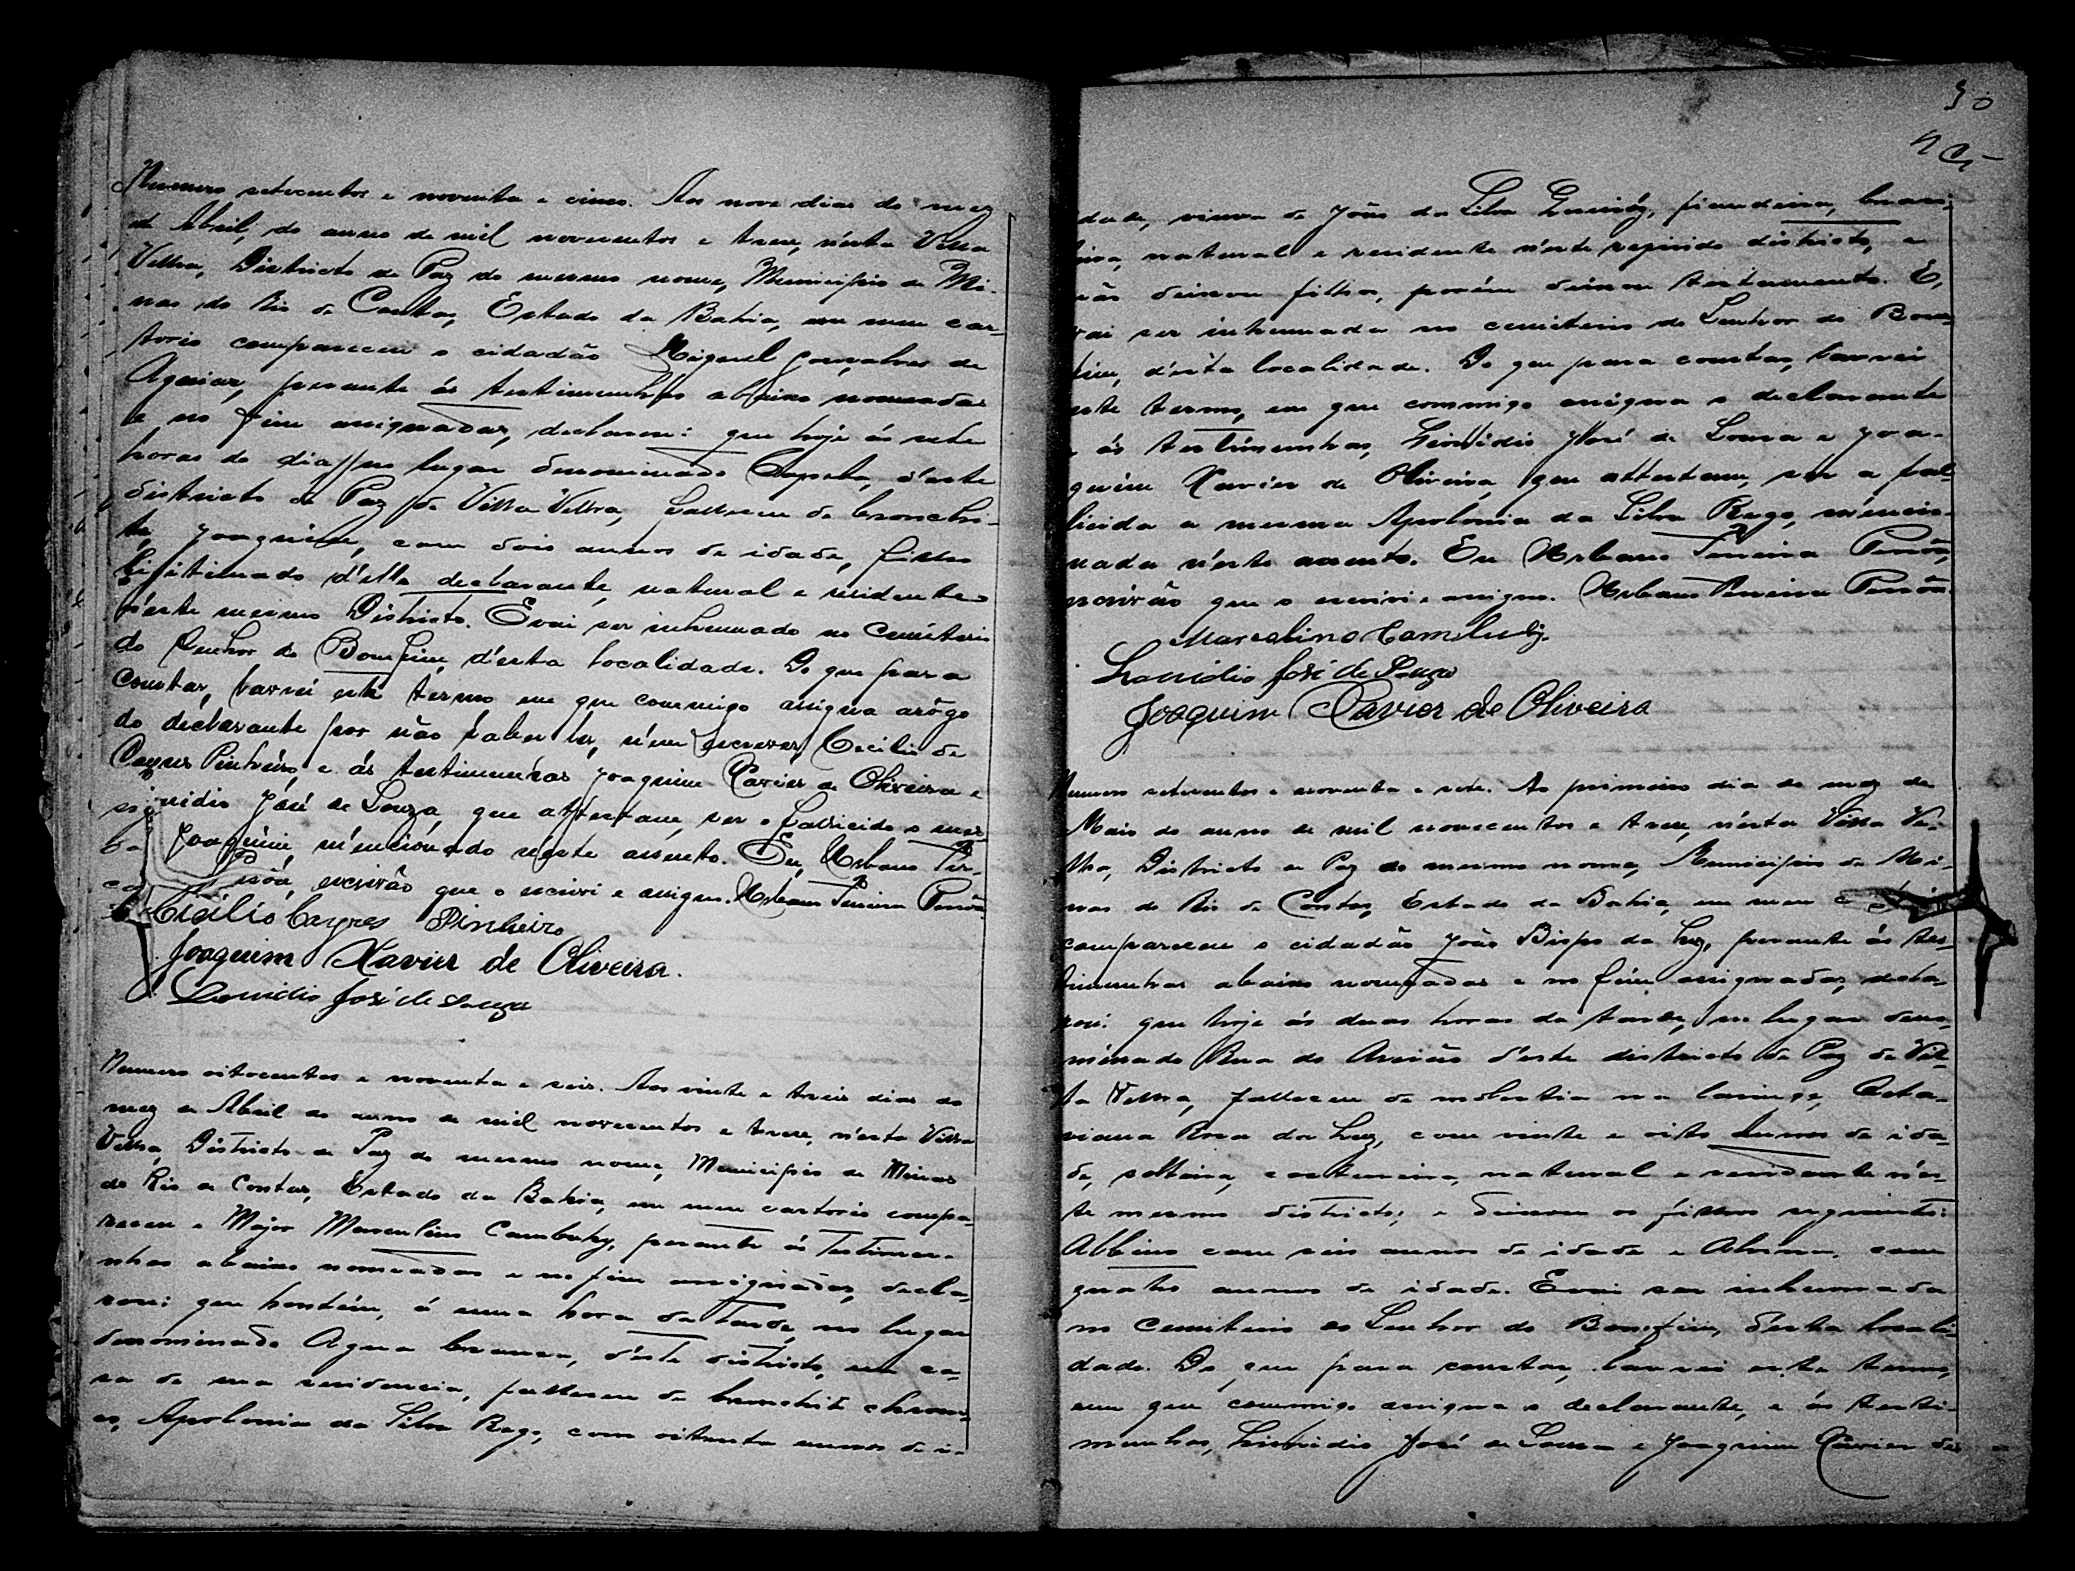 Numero setecentos e noventa e cinco. Aos nove dias do mez
de Abril, do anno de mil novecentos e treze, n'esta Villa
Velha, Districto de Paz do mesmo nome, Municipio de Mi-
nas do Rio de Contas, Estado da Bahia, em meu car-
torio compareceu o cidadão Miguel Gonçalves de
Aguiar, perante ás testimunhas abaixo nomeadas
e no fim assignadas, declarou: que hoje ás sete
horas do dia no lugar denominado Capela, d'este
districto de Paz de Villa Velha, falleceu de bronchi-
te, Joaquim, com dois annos de idade, filho
legitimado d'elle declarante, natural e residente
n'este mesmo Districto. E vai ser inhumado no Cemiterio
do Senhor do Bomfim, d'esta localidade. Do que para
constar, lavrei este termo em que commigo assigna arôgo
do declarante por não saber ler, n'em escrever, Cecilio de
Cayres Pinheiro, e ás testimunhas Joaquim Xavier de Oliveira e
José de Souza, que attestam, ser o fallecido o mes-
Joaquim, mencionado n'este assento. Eu, Urbano Per-
escrivão que o escrivi e assigno. Urbano Pereira Pessôa
Cicilio Cayres Pinheiro
Joaquim Xavier de Oliveira.
Leonidio José de Souza
Numero oitocentos e noventa e seis. Aos vinte e treis dias do
mez de Abril do anno de mil novecentos e treze, n'esta Villa
Velha, Districto de Paz do mesmo nome, Municipio de Minas
do Rio de Contas, Estado da Bahia, em meu cartorio compa-
receu o Major Marcolino Cambuhy, perante ás Testimu-
nhas abaixo nomeadas e no fim assignadas, decla-
rou: que hontém, á uma hora da tarde, no lugar
denominado Agua branca, d'este districto, em ca-
sa de sua residencia, falleceu de bronchite chroni-
ca, Apolonia da Silva Rego, com oitenta annos de i-
30
dade, viuva de João da Silva fiandeira, brasi-
leira, natural e residente n'este referido districto, e
não deixou filhos, porém deixou testamento. E,
vai ser inhumada no cemiterio do Senhor do Bom-
fim, d'esta localidade. Do que para constar, lavrei
este termo, em que commigo assigna o declarante
e ás testimunhas, Leonidio José de Souza e Joa-
quim Xavier de Oliveira, que attestam, ser a fal-
lecida a mesma Apolonia da Silva Rego, mencio-
nada n'este assento. Eu Urbano Pereira Pessôa,
escrivão que o escrivi e assigno. Urbano Pereira Pessôa.
Marcolino Cambuhy.
Leonidio José de Souza
Joaquim Xavier de Oliveira
Numero setecentos e noventa e sete. Ao primeiro dia do mez de
Maio do anno de mil novecentos e treze, n'esta Villa Ve-
lha, Districto de Paz do mesmo nome, Municipio de Mi-
nas do Rio de Contas, Estado da Bahia, em meu
compareceu o cidadão João Bispo da Luz, perante ás tes-
timunhas abaixo nomeadas e no fim assignadas, decla-
rou: que hoje ás duas horas da tarde, no lugar deno-
minado Rua do Areião d'este districto de Paz de Vil-
la Velha, falleceu de molestia na laringe, Octa-
viana Rosa da Luz, com vinte e oito annos de ida-
de, solteira, costureira, natural e residente n'es-
te mesmo districto; e deixou os filhos seguintes:
Albino com seis annos de idade e com
quatro annos de idade. E vai ser inhumada
no Cemiterio do Senhor do Bomfim, d'esta locali-
dade. Do que para constar, lavrei este termo,
em que commigo assigna o declarante, e ás testi-
munhas, Leonidio José de Souza e Joaquim Xavier de